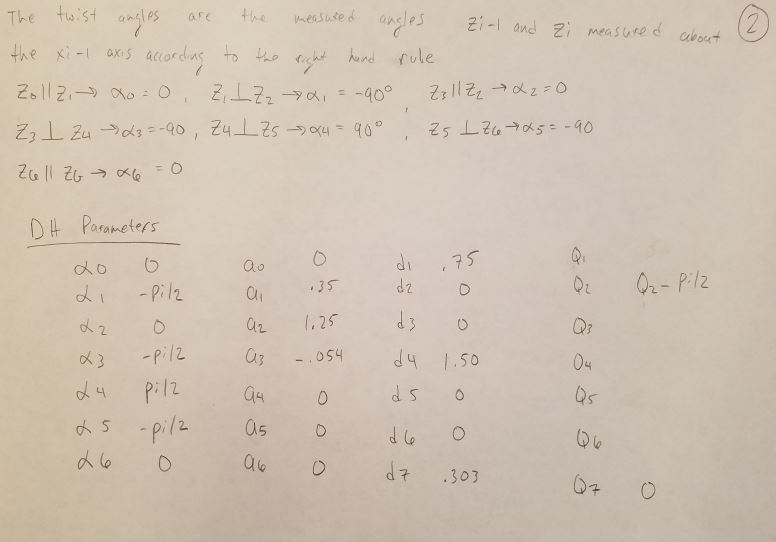 The twist angles are the measured angles Zi-1 and Zi measured about ②
the xi-1 axis according to the right hand rule
Z0 || Z1 → α0 = 0 , Z1 ⊥ Z2 → α1 = -90° , Z3 || Z2 → α2 = 0
Z3 ⊥ Z4 → α3 = -90 , Z4 ⊥ Z5 → α4 = 90° , Z5 ⊥ Z6 → α5 = -90
Z6 || ZG → α6 = 0
DH Parameters
α0 0 a0 0 d1 .75 Q1
α1 -pi/2 a1 .35 d2 0 Q2 Q2 - pi/2
α2 0 a2 1.25 d3 0 Q3
α3 -pi/2 a3 -.054 d4 1.50 Q4
α4 pi/2 a4 0 d5 0 Q5
α5 -pi/2 a5 0 d6 0 Q6
α6 0 a6 0 d7 .303 Q7 0